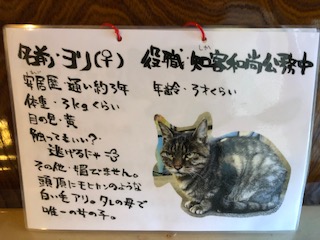 名前・ヨリ(♀)
役職・知客和尚公務中
しか
安居歴・通い約3年
年齢・3才くらい
体重・3kgくらい
目の色・黄
触ってもいい?・
逃げるドャ
その他・媚びません。
頭頂にモヒカンのような
白い毛アリ。タレの母で
唯一の女の子。